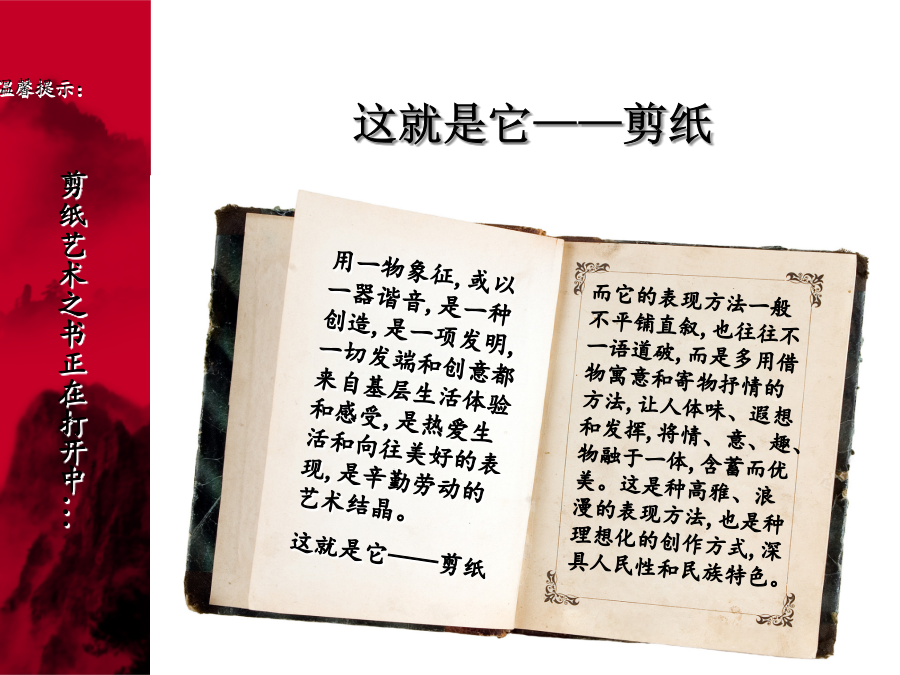 温馨提示：
剪纸艺术之书正在打开中…
这就是它——剪纸
用一物象征，或以
一器谐音，是一种
创造，是一项发明，
一切发端和创意都
来自基层生活体验
和感受，是热爱生
活和向往美好的表
现，是辛勤劳动的
艺术结晶。
这就是它——剪纸
而它的表现方法一般
不平铺直叙，也往往不
一语道破，而是多用借
物寓意和寄物抒情的
方法，让人体味、遐想
和发挥，将情、意、趣、
物融于一体，含蓄而优
美。这是种高雅、浪
漫的表现方法，也是种
理想化的创作方式，深
具人民性和民族特色。